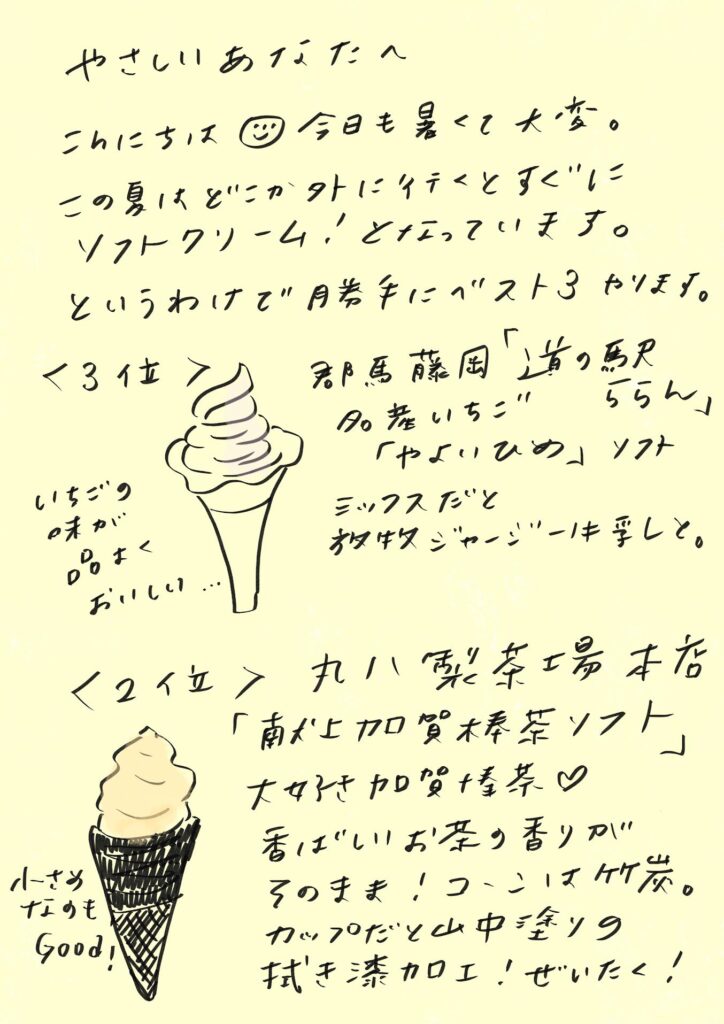 やさしいあなたへ
こんにちは 今日も暑くて大変。
この夏はどこか外に行くとすぐに
ソフトクリーム！となっています。
というわけで勝手にベスト3やります。
＜3位＞
群馬藤岡「道の駅
ららん」
名産いちご
「やよいひめ」ソフト
ミックスだと
放牧ジャージー牛乳しと。
いちごの
味が
品よく
おいしい…
＜2位＞ 丸八製茶場本店
「献上加賀棒茶ソフト」
大好き加賀棒茶♡
香ばしいお茶の香りが
そのまま！コーンは竹炭。
カップだと山中塗りの
拭き漆加工！ぜいたく！
小さめ
なのも
Good!